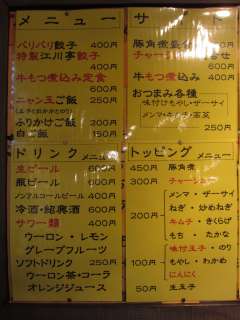 メニュー
パリパリ餃子 400円
特製江川亭餃子 400円
牛もつ煮込み定食 600円
ニャン玉ご飯 250円
ふりかけご飯 200円
白ご飯 150円
サ
豚角煮
チャー
600円
牛もつ煮込み 400円
おつまみ各種
味付けもやし・ザーサイ
メンマ・キムチ
250円
ドリンクメニュー
生ビール 600円
豚ビール 600円
ノンアルコールビール 400円
冷酒・紹興酒 600円
サワー類 400円
ウーロン・レモン
グレープフルーツ
ソフトドリンク 250円
ウーロン茶・コーラ
オレンジジュース
トッピングメニュー
450円 豚角煮
300円 チャー
メンマ・ザーサイ
ねぎ・炒めねぎ
200円 キムチ・きくらげ
もち・なっとう
味付玉子・のり
100円 もやし・わかめ
にんにく
50円 生玉子